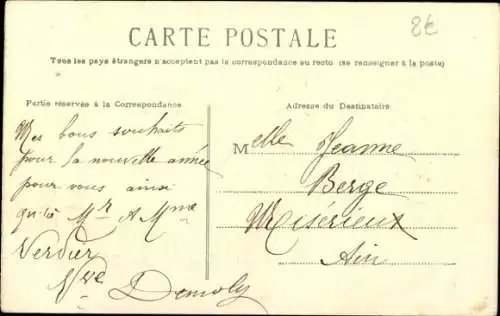 8€
CARTE POSTALE
Tous les pays étrangers n'acceptent pas la correspondance au recto (se renseigner à la poste)
Partie réservée à la Correspondance
Mes bons souhaits
pour la nouvelle année
pour vous ainsi
qu'à Mr & Mme
Verdier
Vve Demoly
Adresse du Destinataire
Melle Jeanne
Berge
Misérieux
Ain